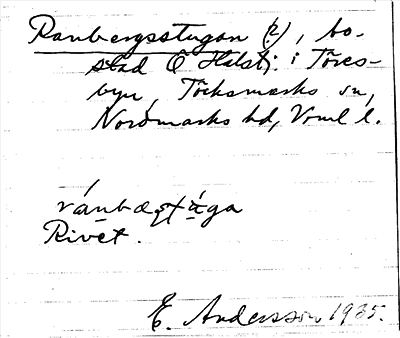 Ranbergsstugan (?), bo-
stad Ö Hälstj. i Töces-
byn, Töcksmarks sn,
Nordmarks hd, Vrml l.
ránbæștúga
Rivet.
E. Andersson 1935.